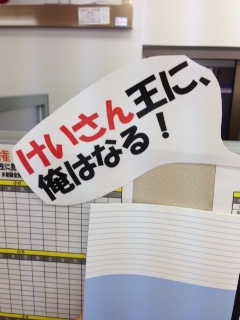 けいさん王に、
俺はなる！
権